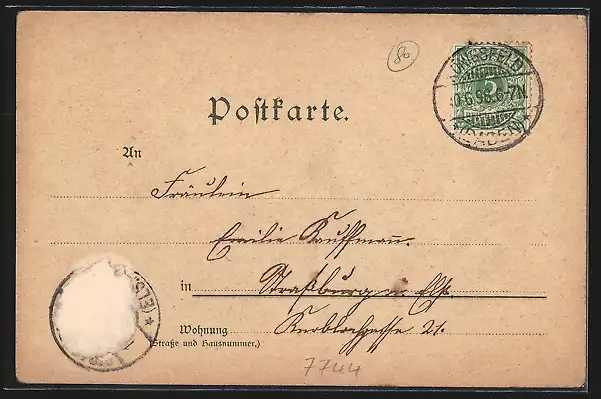 80
KÖNIGSFELD
10.6.98.6-7N.
* (BADEN) *
5
Postkarte.
An
Fräulein
Emilie Kauffmann.
in Straßburg i. Els.
(ELS.) *
Wohnung Knoblochgasse 21.
(Straße und Hausnummer.)
7744